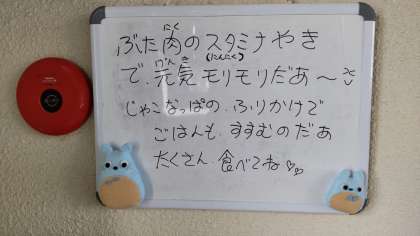 ぶた肉のスタミナやき
にく
(にんにく)
で、元気モリモリだあ〜
げんき
じゃこなっぱの、ふりかけで
ごはんも、すすむのだあ
たくさん、食べてね♡♡